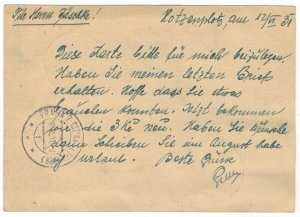 Für Herrn
Hotzenplotz, am 12/VI 35
Diese Karte bitte für mich beizulegen.
Haben Sie meinen letzten Brief
erhalten. Hoffe dass Sie etwas
brauchen konnten. Jetzt bekommen
wir die 3 Kč neu. Haben Sie Wünsche
dann schreiben Sie im August habe
ich Urlaub. Beste Grüsse